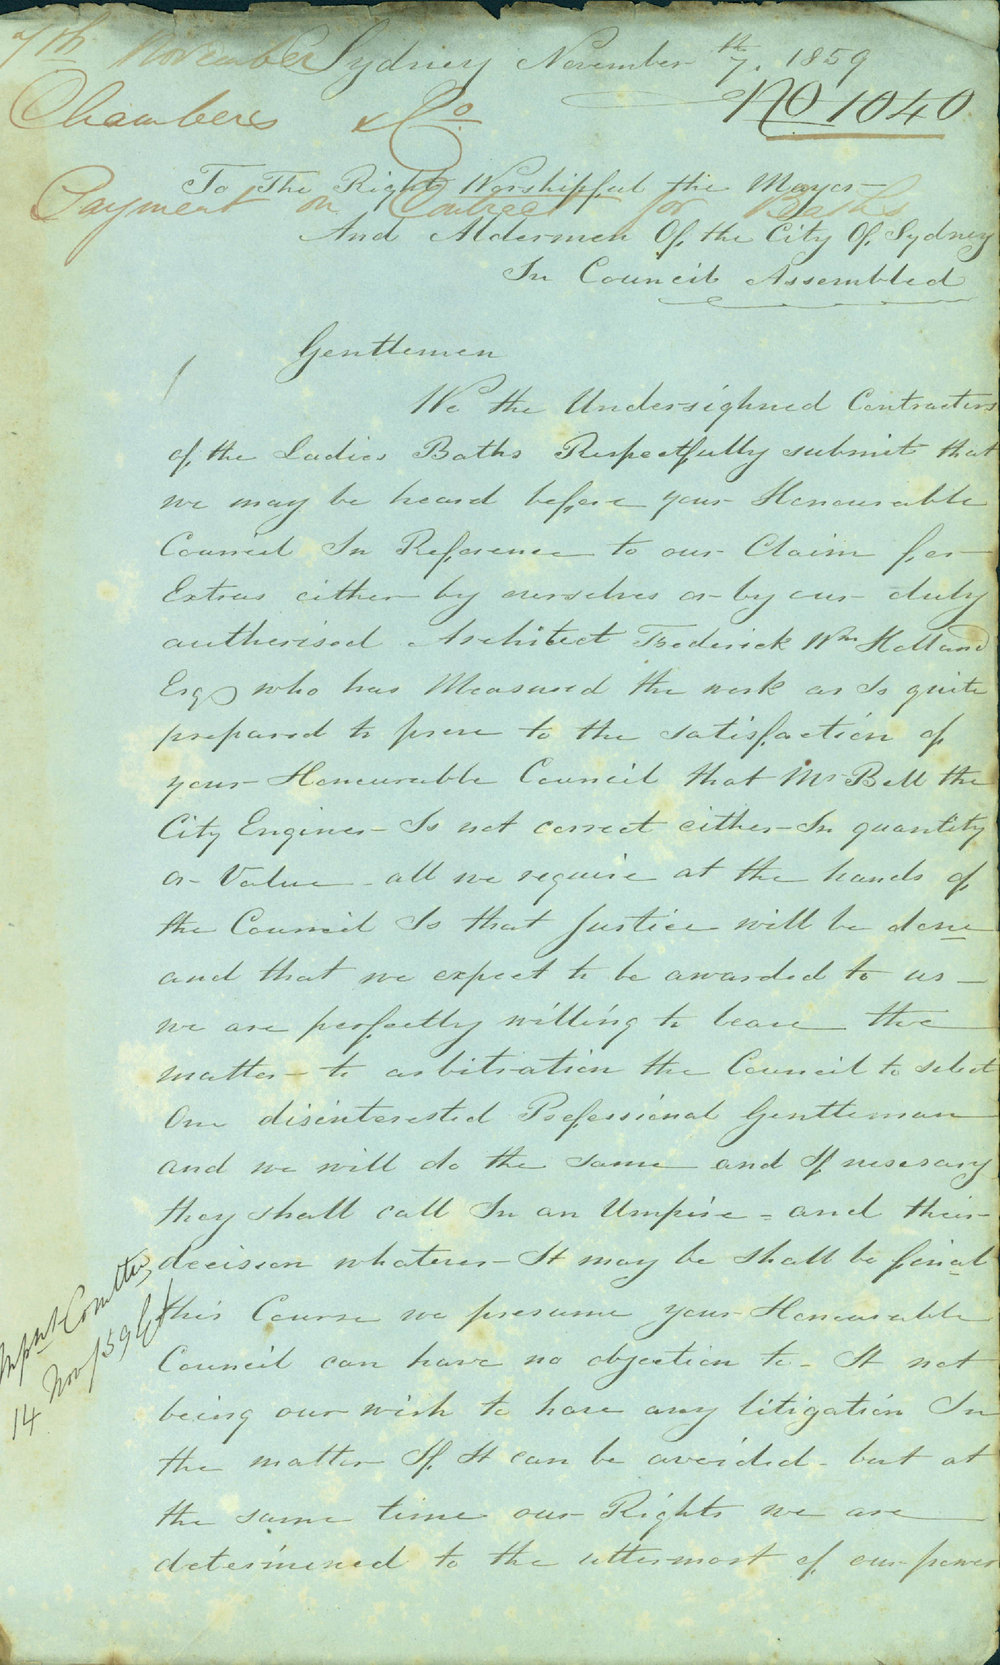 7th November
Sydney November 7th. 1859
No 1040
Chambers & Co
Payment on Contract for Baths
To The Right Worshipful the Mayor
And Aldermen Of the City Of Sydney
In Council Assembled
Gentlemen
We the Undersighned Contractors
of the Ladies Baths Respectfully submit that
we may be heard before your Honourable
Council In Reference to our Claim for
Extras either by ourselves or by our duly
authorised Architect Frederick Wm Holland
Esq who has Measured the work as Is quite
prepared to prove to the satisfaction of
your Honourable Council that Mr Bell the
City Engineer Is not correct either In quantity
or Value - all we require at the hands of
the Council Is that Justice will be done
and that we expect to be awarded to us -
we are perfectly willing to leave the
matter to arbitration the Council to select
One disinterested Professional Gentleman
and we will do the same and If nesesary
they shall call In an Umpire - and their
decision whatever It may be shall be final
this Course we presume your Honourable
Council can have no objection to - It not
being our wish to have any litigation In
the matter If It can be avoided - but at
the same time our Rights we are
determined to the uttermost of our power
Impnt Comttee
14 Nov/59